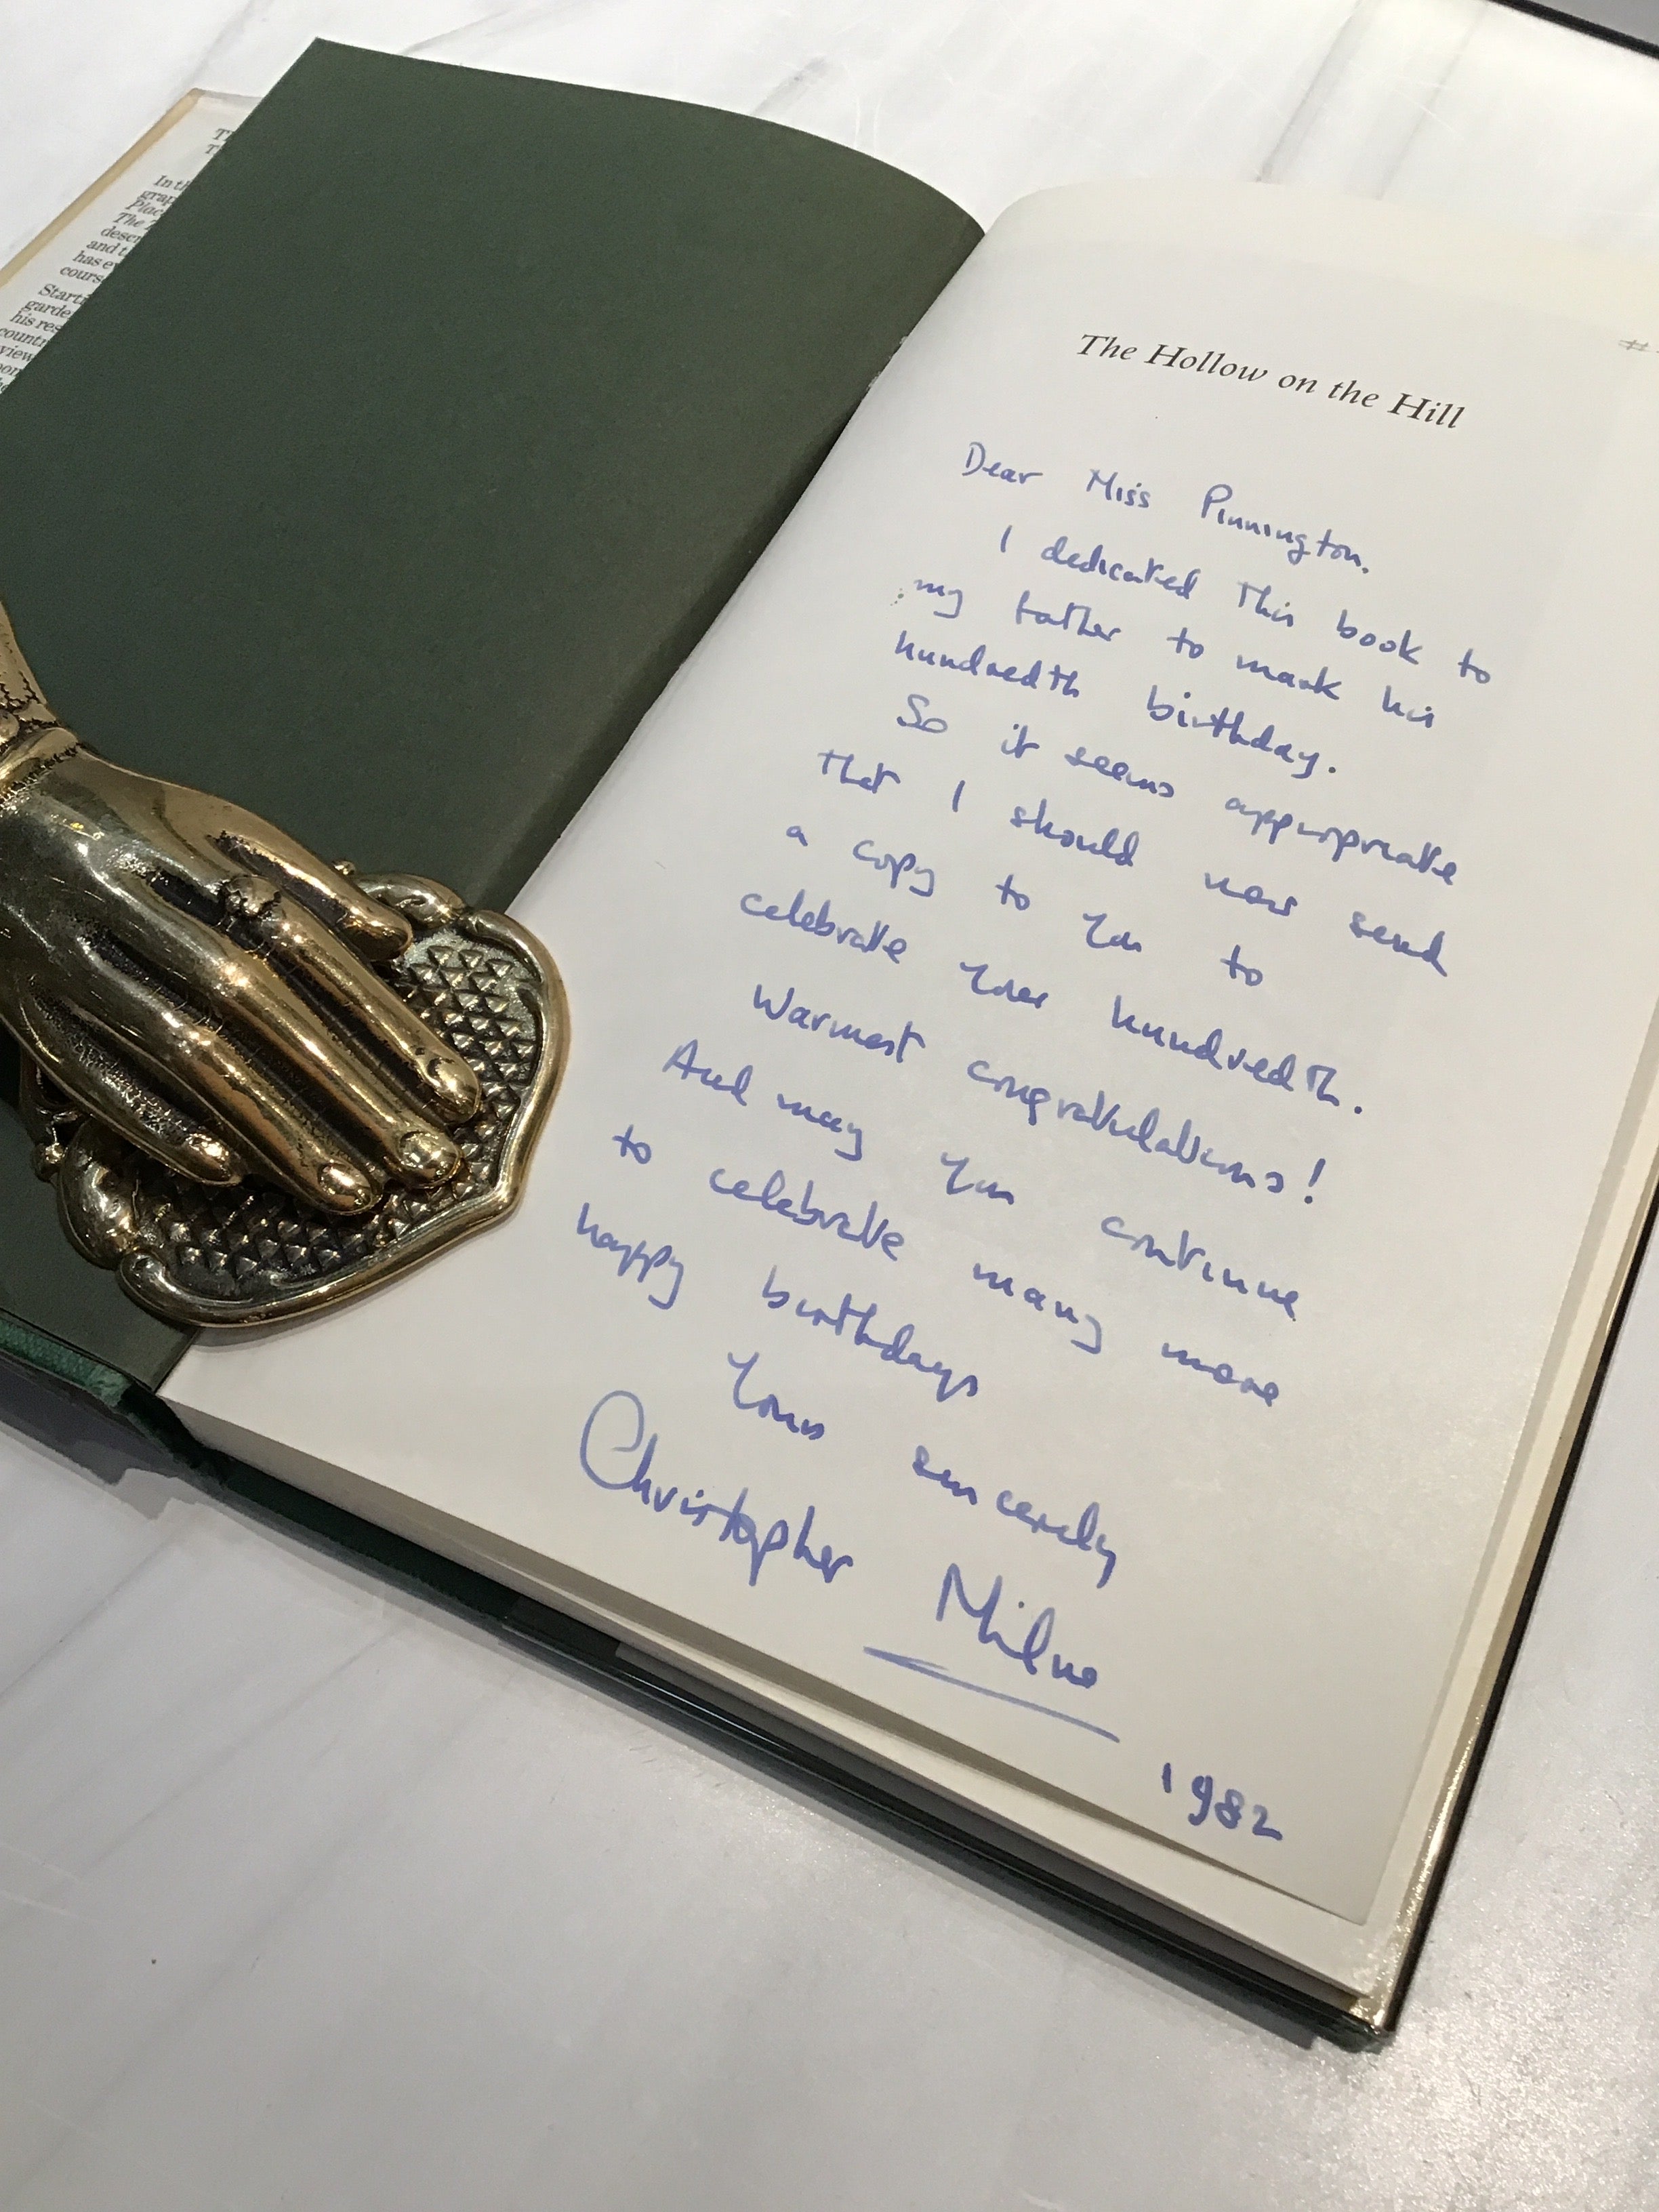 Th
Th
In th
grap
Plac
The
descr
and t
has ev
cours
Starti
garde
his res
countr
view
The Hollow on the Hill
#
Dear Miss Pinnington.
I dedicated this book to
my father to mark his
hundredth birthday.
So it seems appropriate
that I should now send
a copy to you to
celebrate your hundredth.
Warmest congratulations!
And may you continue
to celebrate many more
happy birthdays
Yours sincerely
Christopher Milne
1982